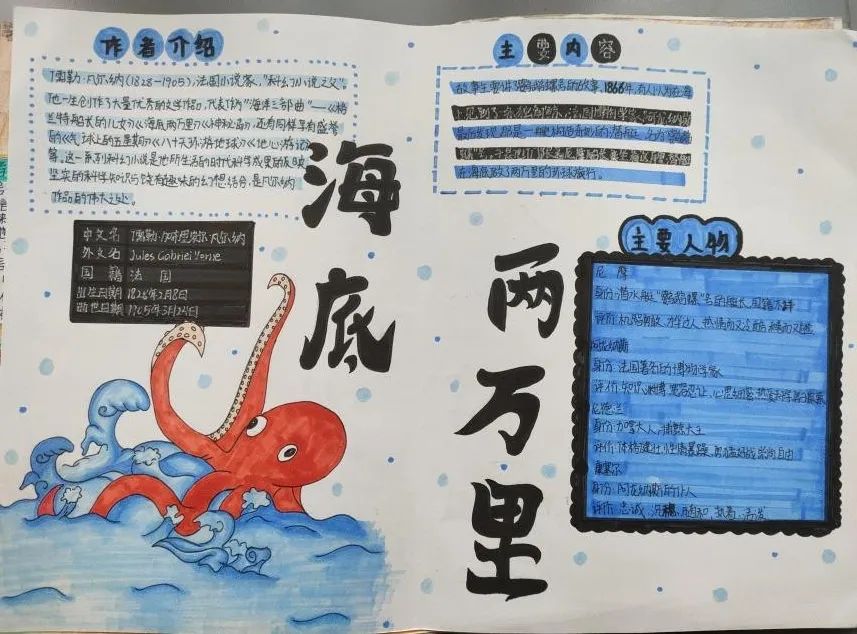 作者介绍
儒勒·凡尔纳(1828-1905),法国小说家,"科幻小说之父"。
他一生创作了大量优秀的文学作品,代表作为"海洋三部曲"——《格
兰特船长的儿女》《海底两万里》《神秘岛》,还有同样享有盛誉
的《气球上的五星期》《八十天环游地球》《地心游记》
等。这一系列科幻小说是他所生活的时代科学成果的反映
坚实的科学知识与饶有趣味的幻想结合,是凡尔纳
作品的伟大之处。
中文名 儒勒·加布里埃尔·凡尔纳
外文名 Jules Gabriel Verne
国 籍 法 国
出生日期 1828年2月8日
逝世日期 1905年3月24日
海底
两万里
主要内容
故事主要讲了鹦鹉螺号的故事,1866年,有人以为在海
在海底做了两万里的环球旅行。
主要人物
尼 摩
身份:潜水艇"鹦鹉螺"号的船长,国籍不详
评价:机智勇敢
阿龙纳斯
身份:法国著名的博物学家
评价:知识渊博
尼德兰
身份:加拿大人,捕鲸大王
评价:体格健壮 性情暴躁 向自由
康塞尔
身份:阿龙纳斯的仆人
评价:忠诚,沉稳,随和,执着,